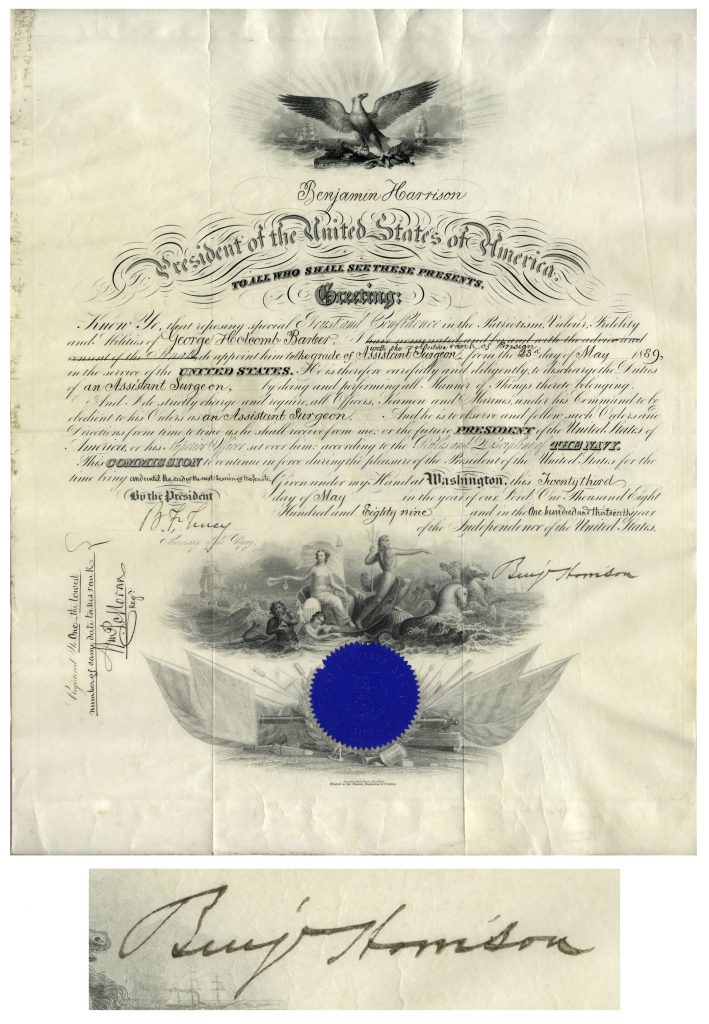 Benjamin Harrison
President of the United States of America.
TO ALL WHO SHALL SEE THESE PRESENTS,
Greeting:
Know Ye, that reposing special Trust and Confidence in the Patriotism, Valour, Fidelity
with the relative rank of Ensign
and Abilities of George Holcomb Barber, I have nominated and with the advice and
consent of the Senate do appoint him to the grade of Assistant Surgeon, from the 23d day of May 1889,
in the service of the UNITED STATES. He is therefore carefully and diligently to discharge the Duties
of an Assistant Surgeon, by doing and performing all Manner of Things thereto belonging.
And I do strictly charge and require all Officers, Seamen and Marines, under his Command to be
obedient to his Orders as an Assistant Surgeon. And he is to observe and follow such Orders and
Directions from time to time as he shall receive from me, or the future PRESIDENT of the United States of
America, or his Superior Officer set over him, according to the Rules and Discipline of THE NAVY.
This COMMISSION to continue in force during the pleasure of the President of the United States for the
time being and until the end of the next session of the Senate. Given under my Hand at Washington, this Twenty third
By the President
day of May in the year of our Lord One Thousand Eight
B. F. Tracy
Hundred and Eighty nine and in the One hundred and thirteenth year
of the Independence of the United States.
Secretary of the Navy.
Benj Harrison
Registered No. One - the lowest
number of same date takes rank
Wm P. Moran
Reg'r
Benj Harrison